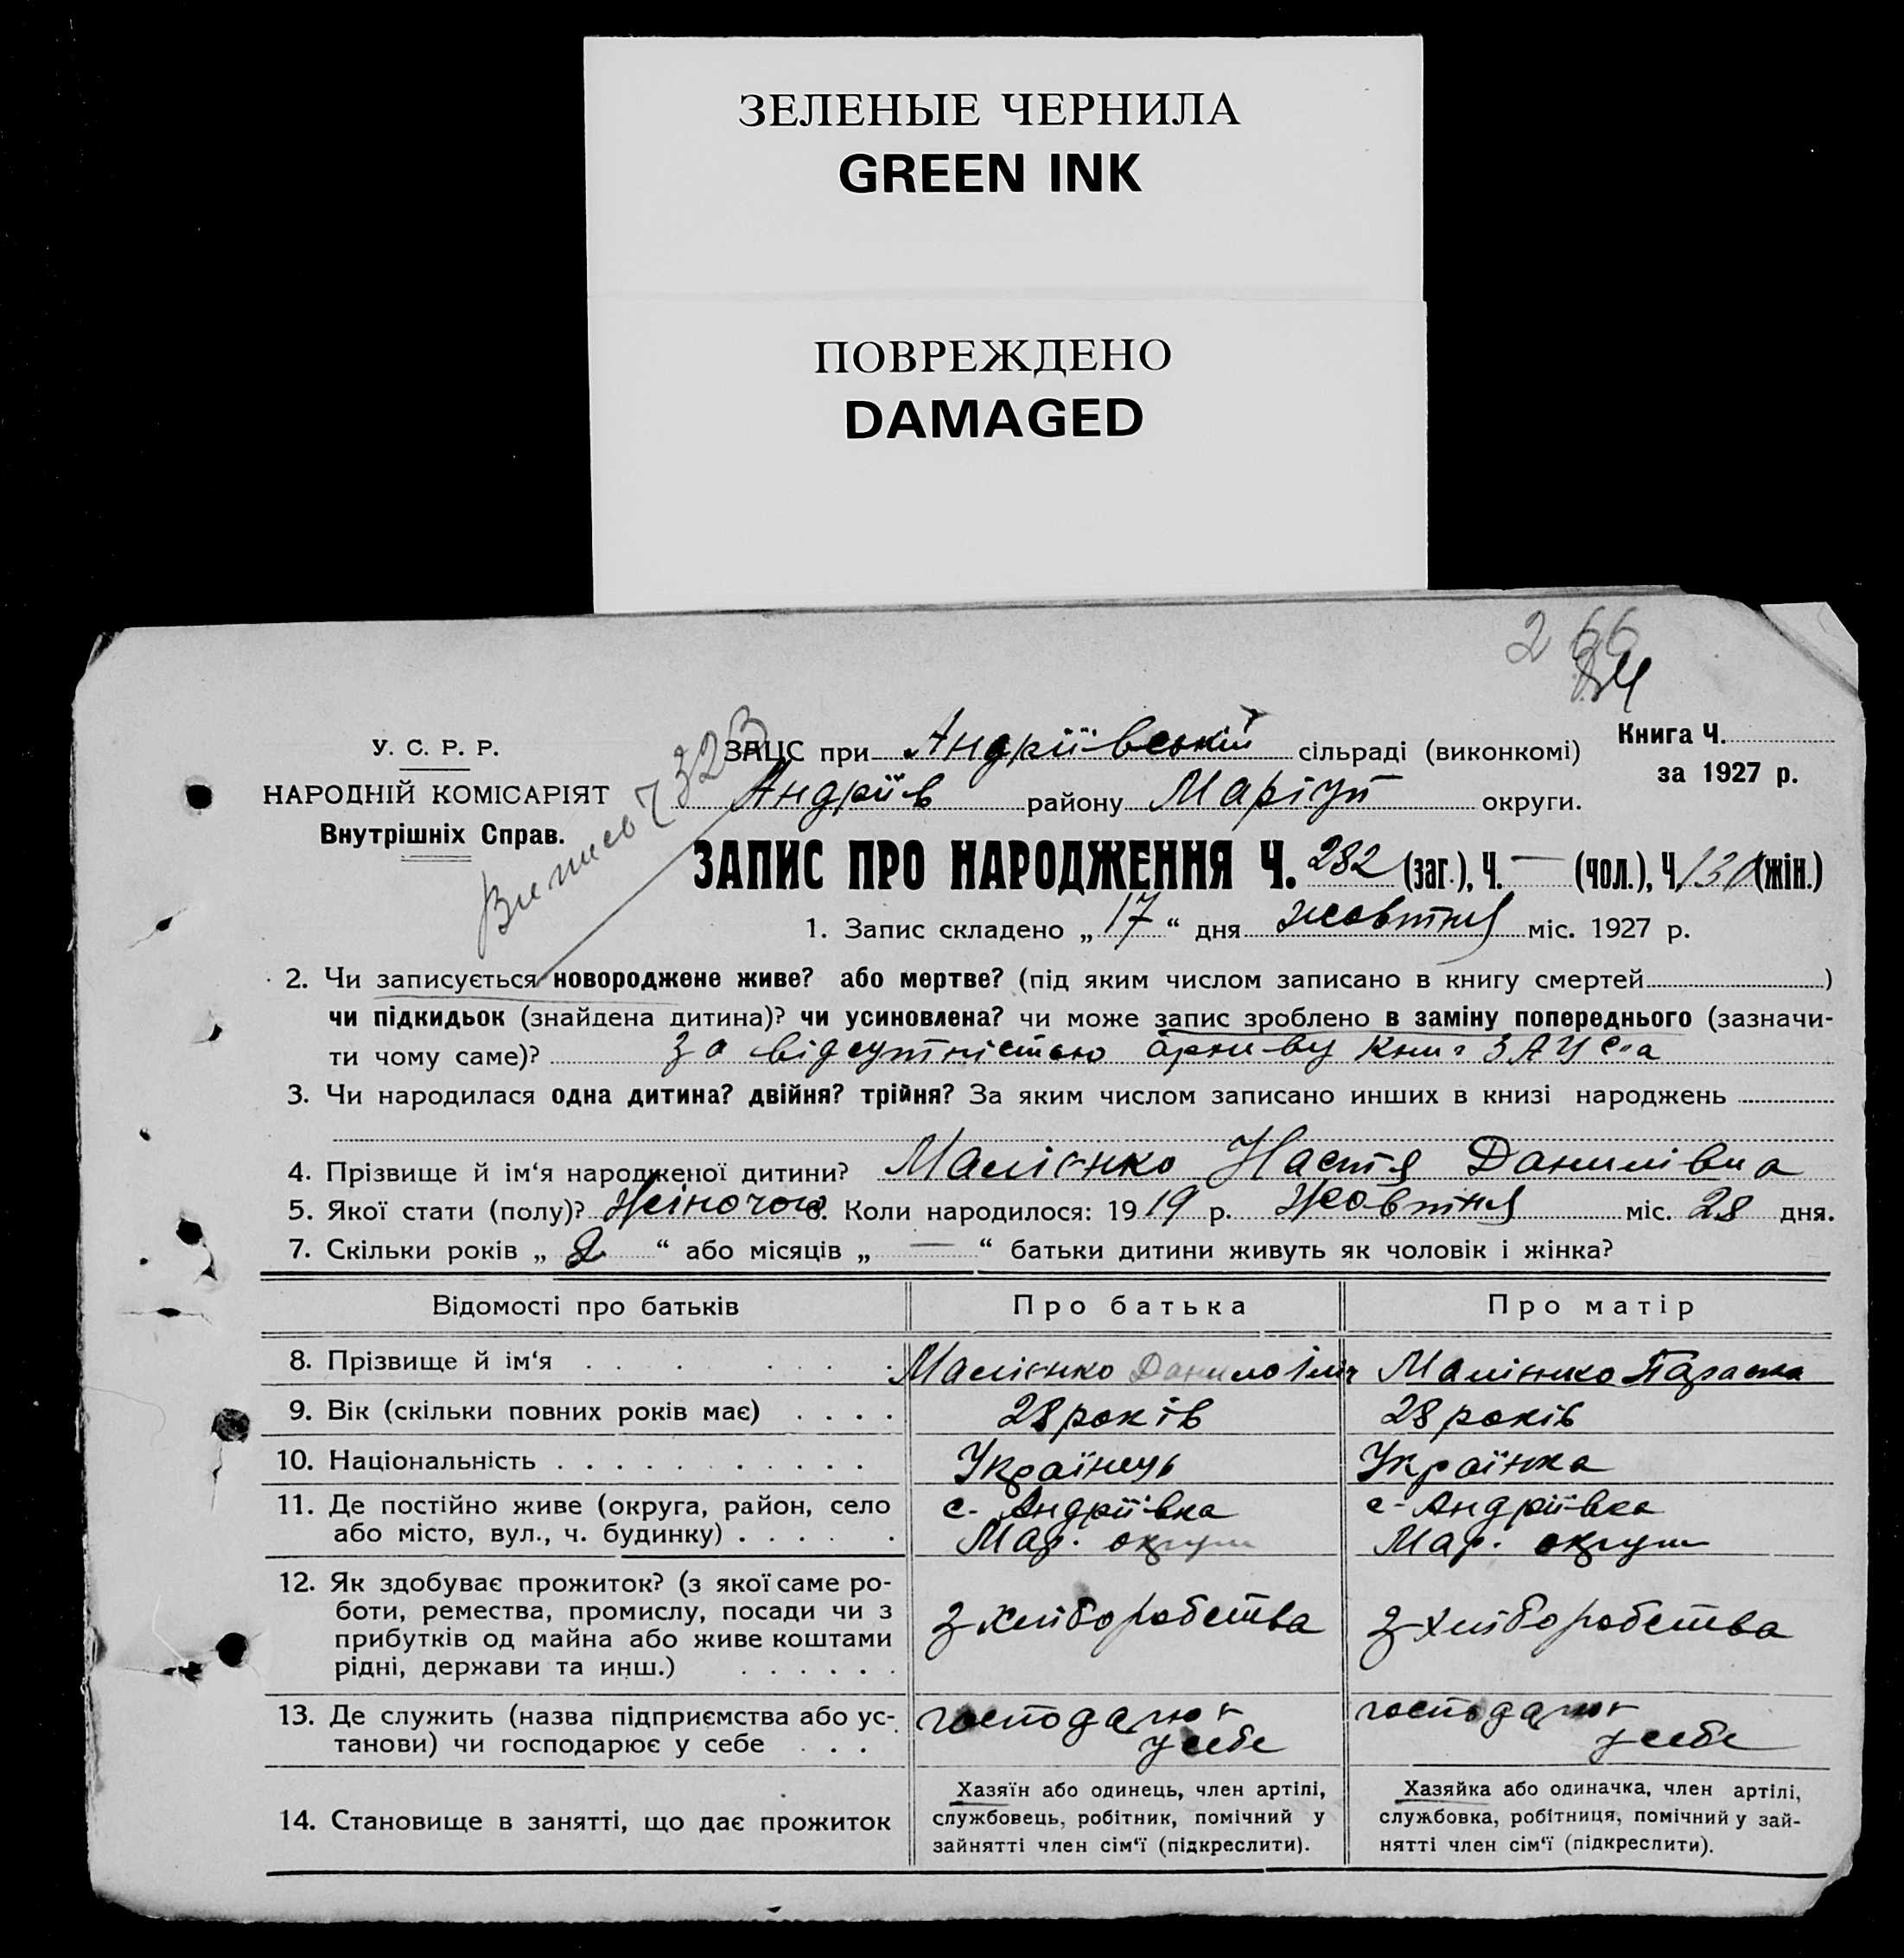 ЗЕЛЕНЫЕ ЧЕРНИЛА
GREEN INK
ПОВРЕЖДЕНО
DAMAGED
266
У. С. Р. Р.
НАРОДНІЙ КОМІСАРІЯТ
Внутрішніх Справ.
ЗАЦС при Андріївській сільраді (виконкомі)
Книга Ч.
за 1927 р.
Андріїв району Маріуп округи.
ЗАПИС ПРО НАРОДЖЕННЯ Ч. 282 (заг.), Ч. — (чол.), Ч. 130 (жін.)
1. Запис складено „ 17 “ дня жовтня міс. 1927 р.
2. Чи записується новороджене живе? або мертве? (під яким числом записано в книгу смертей )
чи підкидьок (знайдена дитина)? чи усиновлена? чи може запис зроблено в заміну попереднього (зазначи-
ти чому саме)? за відсутністью архиву книг ЗАУСа
3. Чи народилася одна дитина? двійня? трійня? За яким числом записано инших в книзі народжень
4. Прізвище й ім‘я народженої дитини? Малієнко Настя Данилівна
5. Якої стати (полу)? Жіночою 6. Коли народилося: 1919 р. Жовтня міс. 28 дня.
7. Скільки років „ 2 “ або місяців „ — “ батьки дитини живуть як чоловік і жінка?
Відомості про батьків Про батька Про матір
8. Прізвище й ім‘я Малієнко Данило Іліч Малієнко Параска
9. Вік (скільки повних років має) 28 років 28 років
10. Національність Українець Українка
11. Де постійно живе (округа, район, село с. Андріївка с. Андріївка
або місто, вул., ч. будинку) Мар. округи Мар. округи
12. Як здобуває прожиток? (з якої саме ро-
боти, ремества, промислу, посади чи з
прибутків од майна або живе коштами
рідні, держави та инш.)
з хліборобства з хліборобства
13. Де служить (назва підприємства або ус- господарює господарює
танови) чи господарює у себе у себе у себе
14. Становище в занятті, що дає прожиток
Хазяїн або одинець, член артілі,
службовець, робітник, помічний у
зайнятті член сім‘ї (підкреслити).
Хазяйка або одиначка, член артілі,
службовка, робітниця, помічний у зай-
нятті член сім‘ї (підкреслити).